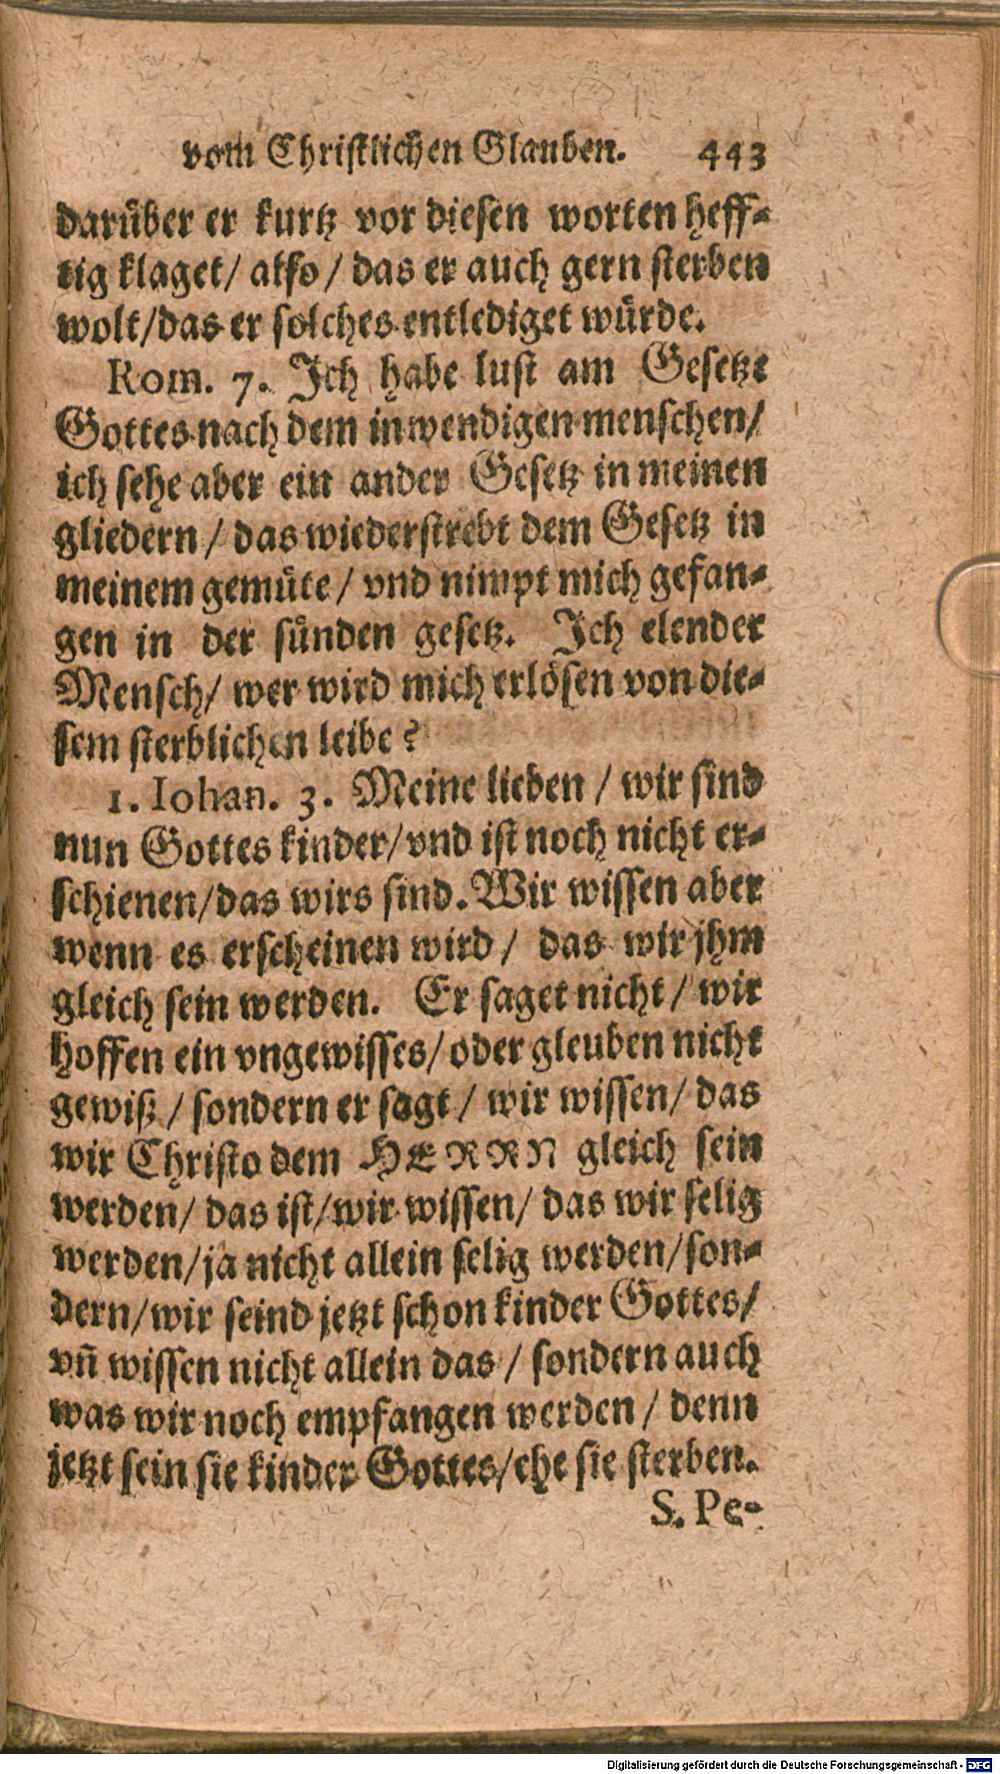 vom Christlichen Glauben. 443
darüber er kurtz vor diesen worten heff-
tig klaget/ also/ das er auch gern sterben
wolt/das er solches entlediget würde.
Rom. 7. Ich habe lust am Gesetze
Gottes nach dem inwendigen menschen/
ich sehe aber ein ander Gesetz in meinen
gliedern/ das wiederstrebt dem Gesetz in
meinem gemüte/ vnd nimpt mich gefan-
gen in der sünden gesetz. Ich elender
Mensch/ wer wird mich erlösen von die-
sem sterblichen leibe?
1. Iohan. 3. Meine lieben/ wir sind
nun Gottes kinder/vnd ist noch nicht er-
schienen/das wirs sind. Wir wissen aber
wenn es erscheinen wird/ das wir jhm
gleich sein werden. Er saget nicht/ wir
hoffen ein vngewisses/ oder gleuben nicht
gewiß/ sondern er sagt/ wir wissen/ das
wir Christo dem HERRN gleich sein
werden/ das ist/wir wissen/ das wir selig
werden/ja nicht allein selig werden/son-
dern/wir seind jetzt schon kinder Gottes/
vñ wissen nicht allein das/ sondern auch
was wir noch empfangen werden/ denn
jetzt sein sie kinder Gottes/ehe sie sterben.
S. Pe-
Digitalisierung gefördert durch die Deutsche Forschungsgemeinschaft - DFG